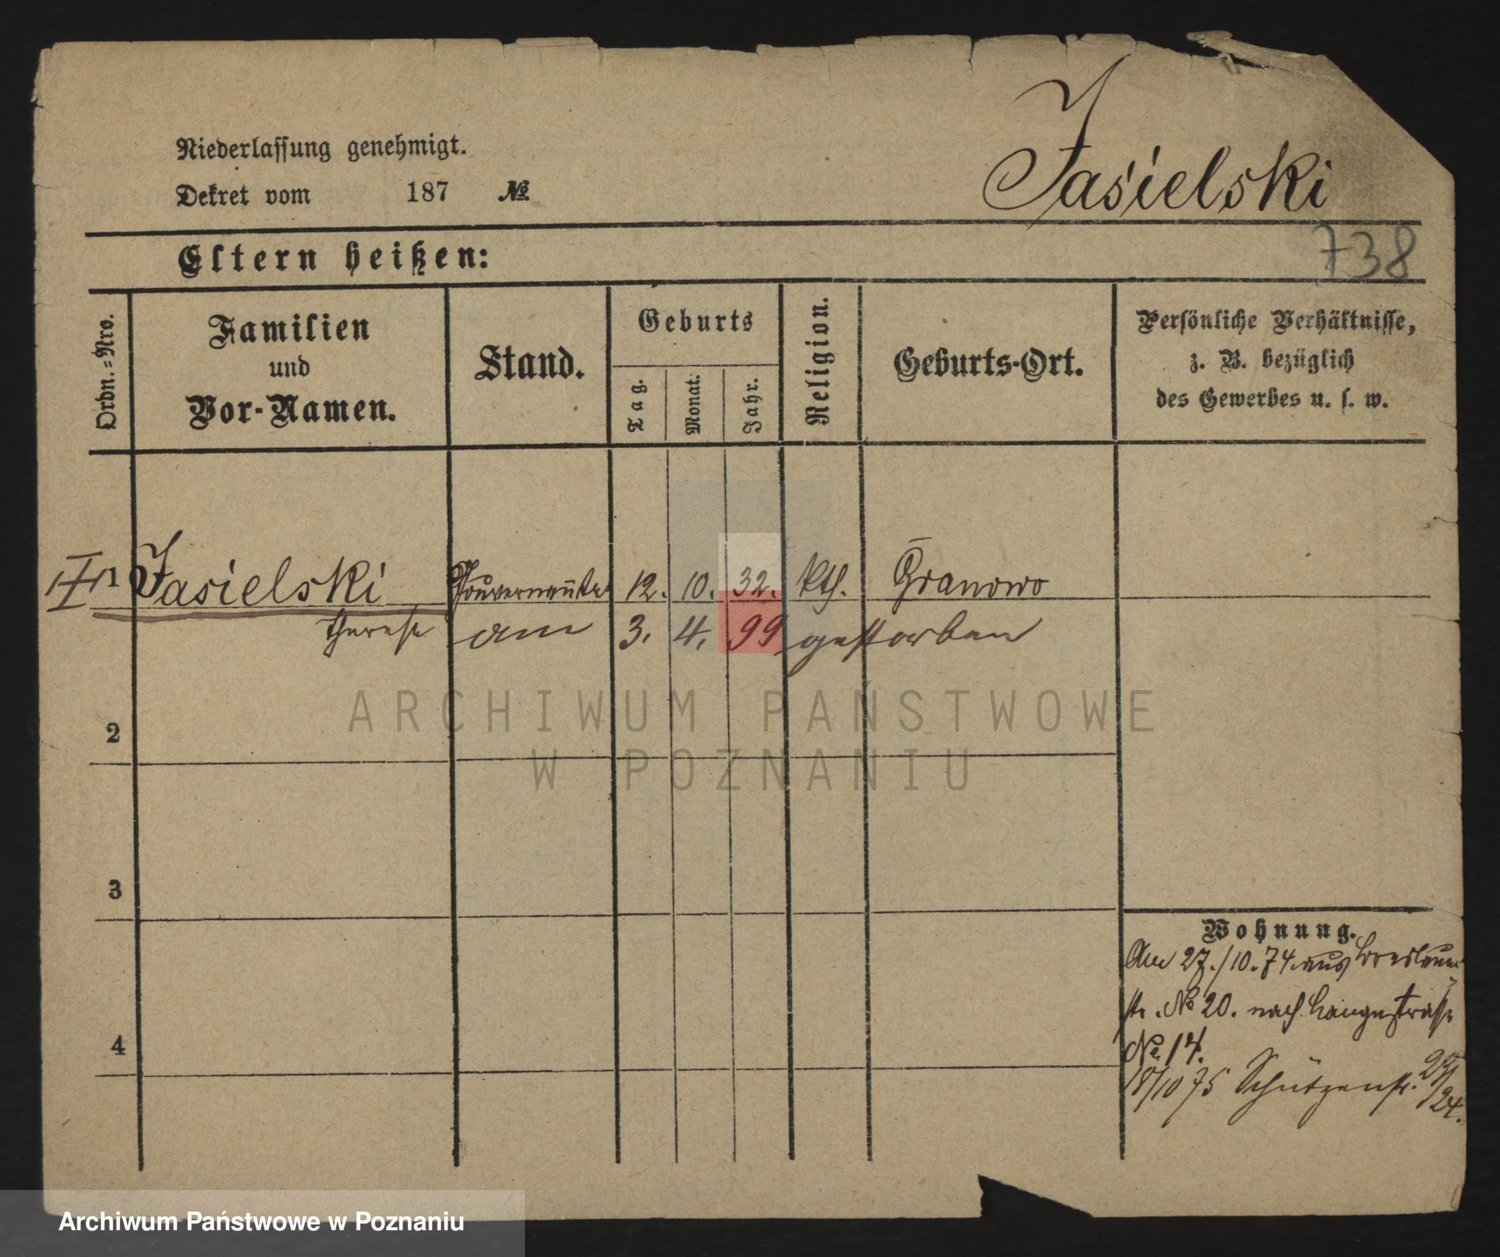 Niederlassung genehmigt.
Dekret vom 187 №
Jasielski
738
Eltern heißen:
Ordn.-Nro.
Familien
und
Vor-Namen.
Stand.
Geburts
Tag.
Monat.
Jahr.
Religion.
Geburts-Ort.
Persönliche Verhältnisse,
z. B. bezüglich
des Gewerbes u. s. w.
1 Jasielski Gouvernante 12. 10. 32. kth. Granowo
Therese am 3. 4. 99 gestorben
2
3
4
Wohnung.
Am 27./10.74 aus Breslauer
str. № 20. nach Langestrasse
№ 14.
18/10 75 Schützenstr.
ARCHIWUM PAŃSTWOWE
W POZNANIU
Archiwum Państwowe w Poznaniu